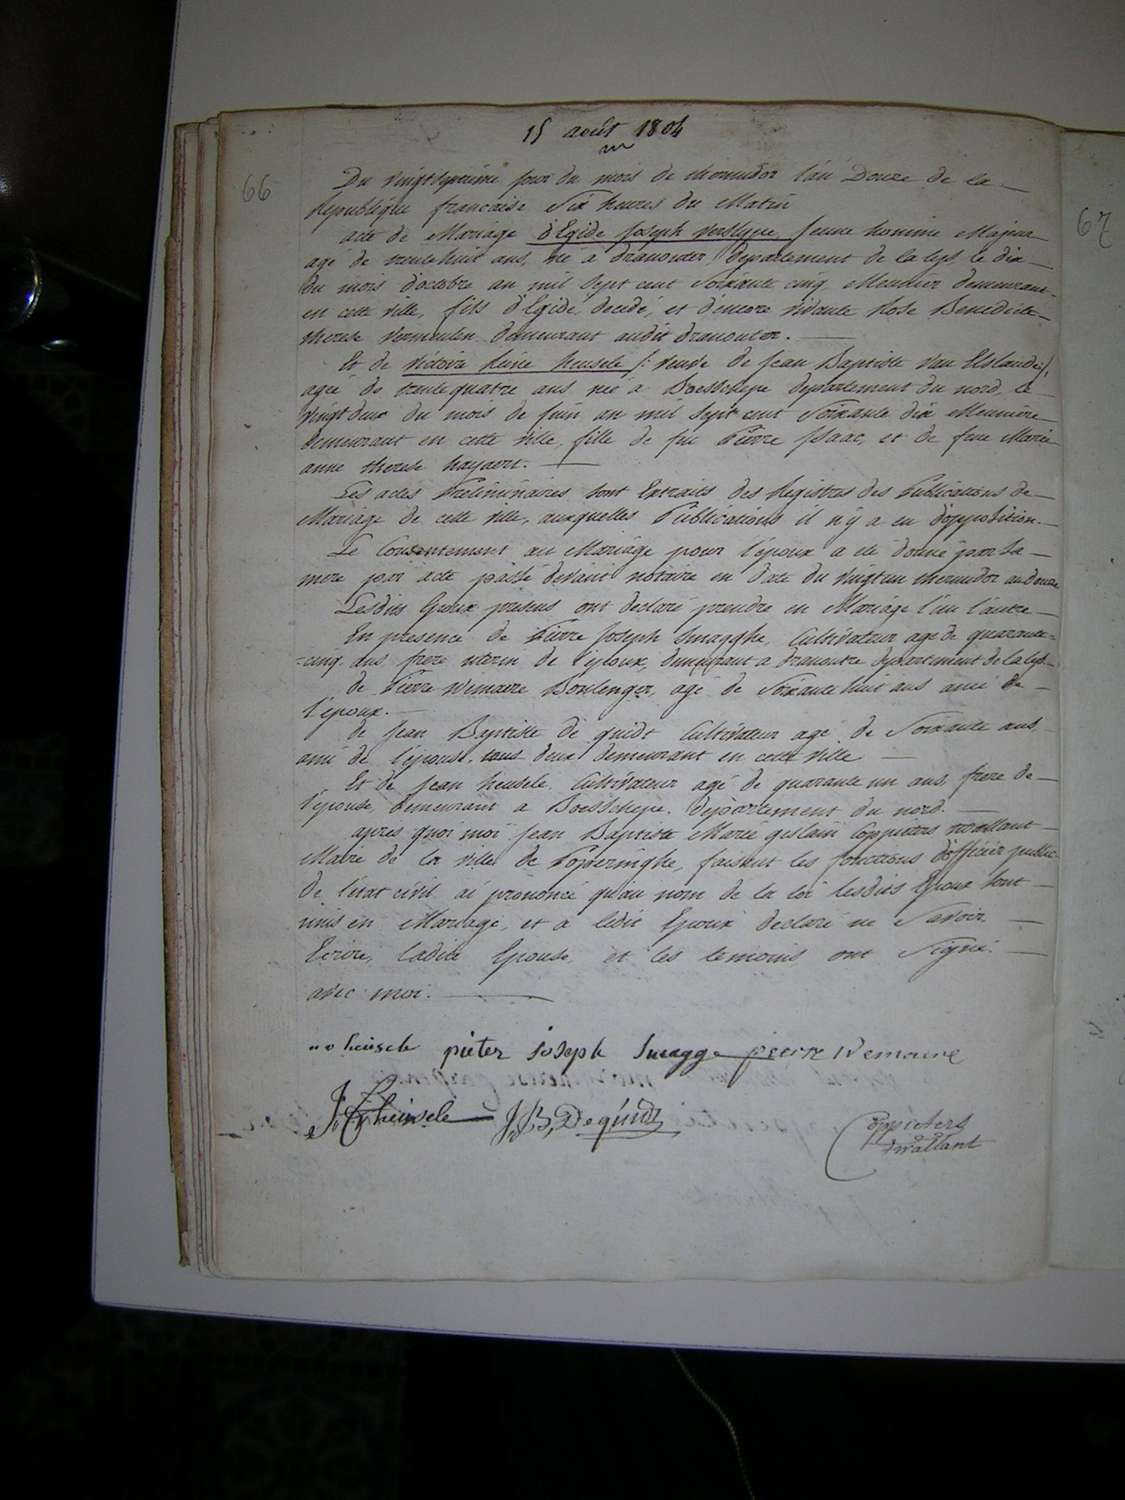 15 août 1804
66
Du vingt septieme jour du mois de thermidor l'an Douze de la
République française Six heures du Matin
acte de Mariage d'Egide Joseph jeune homme Majeur
agé de trente huit ans, né a dranouter, Département de la Lys le dix
du mois d'octobre an mil Sept cent Soixante cinq Meunier demeurant
en cette ville, fils d'Egide, decedé, et d'encore vivante Rose Benedicte
therese Vermeulen demeurant audit dranouter.
Et de victoire Reine heusele /: veuve de Jean Baptiste Van Elslande :/
agée de trente quatre ans née a Boesschepe departement du nord, le
vingt deux du mois de juin an mil Sept cent Soixante dix Meuniere
demeurant en cette ville, fille de feu Pierre Isaac, et de feue Marie
anne therese
Les actes Preliminaires sont Extraits des Registres des Publications de
Mariage de cette ville, auxquelles Publications il n'y a eu d'opposition.
Le Consentement au Mariage pour l'époux a été donné par sa
mere par acte passé devant notaire en date du vingt un thermidor an douze
Lesdits Epoux presens ont declaré prendre en Mariage l'un l'autre
En presence de Pierre Joseph Smagghe, Cultivateur agé de quarante
cinq ans, frere uterin de l'époux, demeurant a dranoutre departement de la Lys
de Pierre Wimaere Boulenger, agé de Soixante huit ans ami de
l'époux.
de Jean Baptiste de quidt Cultivateur agé de Soixante ans
ami de l'épouse, tous deux demeurant en cette ville
Et de Jean heusele, Cultivateur agé de quarante un ans, frere de
l'épouse, demeurant a Boesschepe. departement du nord.
apres quoi moi Jean Baptiste Marie Coppieters
Maire de la ville de Poperinghe, faisant les fonctions d'officier public
de l'état civil ai prononcé qu'au nom de la loi lesdits Epoux sont
unis en Mariage, et a ledit Epoux declaré ne Savoir
Ecrire, ladite Epouse, et les temoins ont Signé
avec moi.
heusele pieter Joseph Smagge pierre Wemaire
heusele J, B, De quidt
Coppieters
67